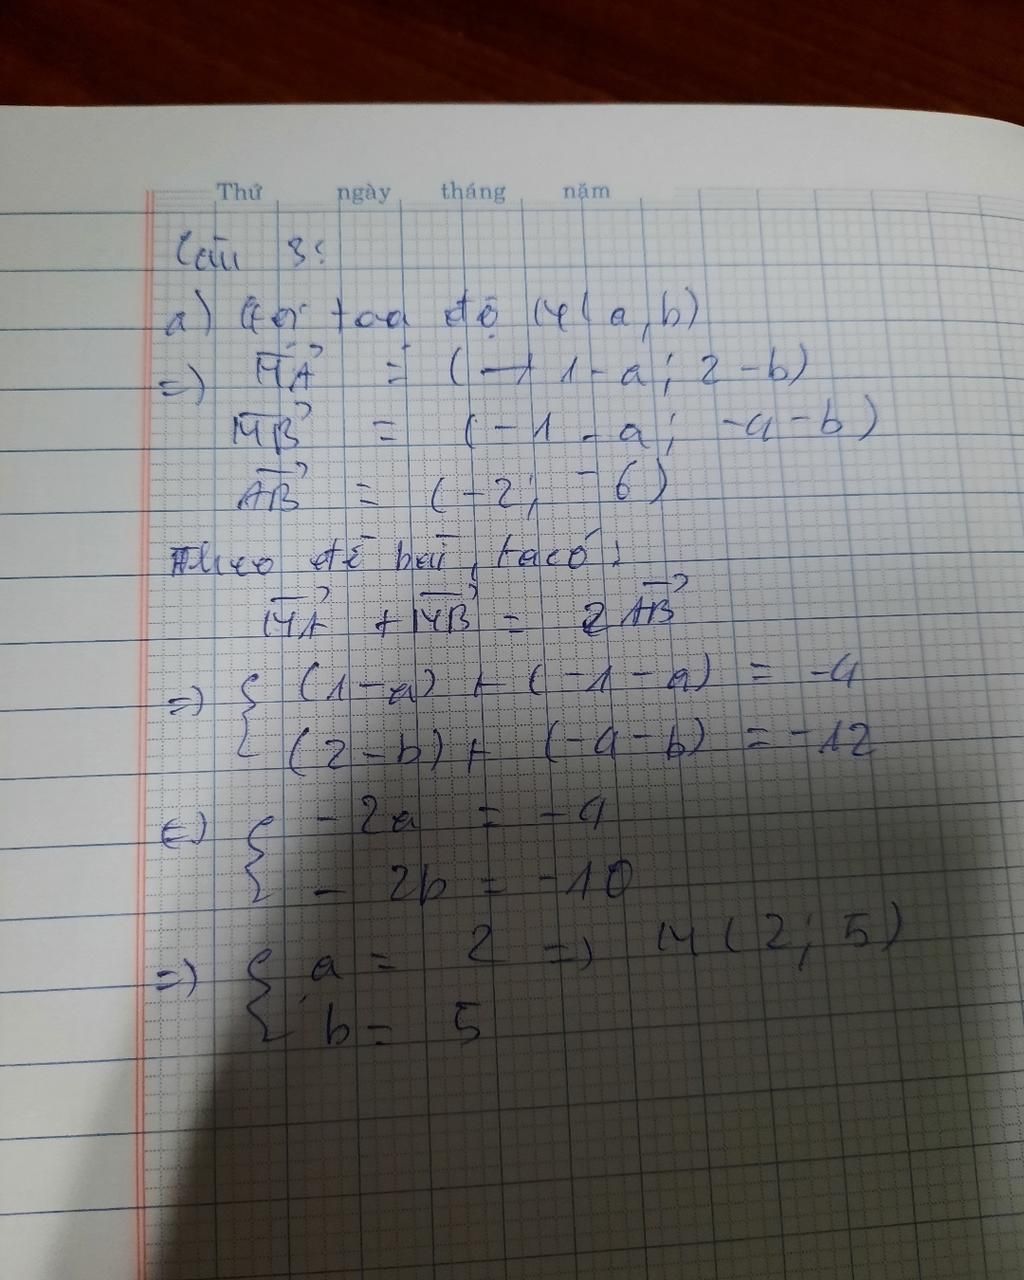 Thứ ngày tháng năm
Câu 3:
a) Gọi toạ độ M(a,b)
=) MA→ = (1-a; 2-b)
MB→ = (-1-a; -4-b)
AB→ = (-2; -6)
Theo đề bài, ta có:
MA→ + MB→ = 2AB→
=) { (1-a) + (-1-a) = -4
(2-b) + (-4-b) = -12
(=) { -2a = -4
-2b = -10
=) { a = 2 =) M(2; 5)
b = 5